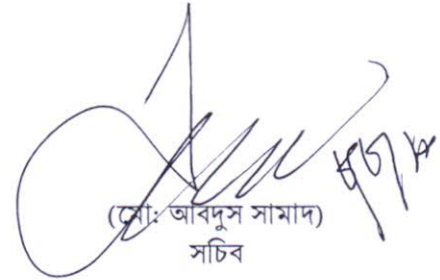 (মো: আবদুস সামাদ)
সচিব